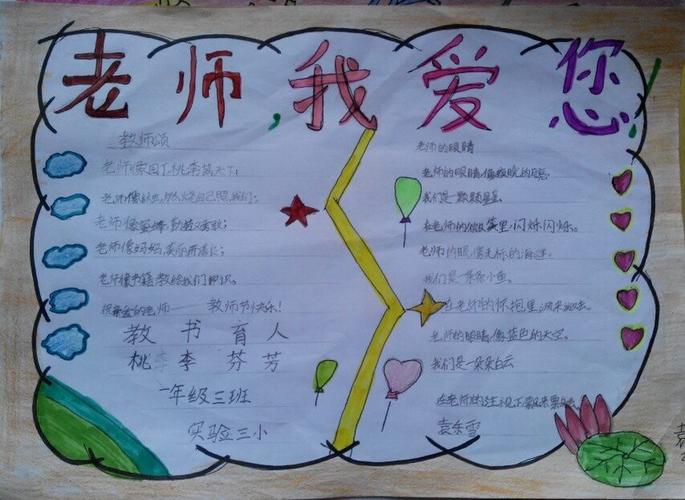 老师,我爱您
教师颂
老师像园丁,桃李满天下;
老师像蜡烛,燃烧自己照我们;
老师像蜜蜂,勤劳又勇敢;
老师像妈妈,
老师像书籍,教给我们知识。
祝亲爱的老师 教师节快乐!
教书育人
桃李芬芳
一年级三班
实验三小
老师的眼睛
老师的眼睛,像夜晚的月亮。
我们是一颗颗星星。
在老师的怀里,闪烁闪烁。
老师的眼,像无标的海洋。
我们是一条条小鱼。
在老师的怀抱里,游来游去。
老师的眼睛,像蓝色的天空。
我们是一朵朵白云
在老师的注视下,飘来飘去
袁